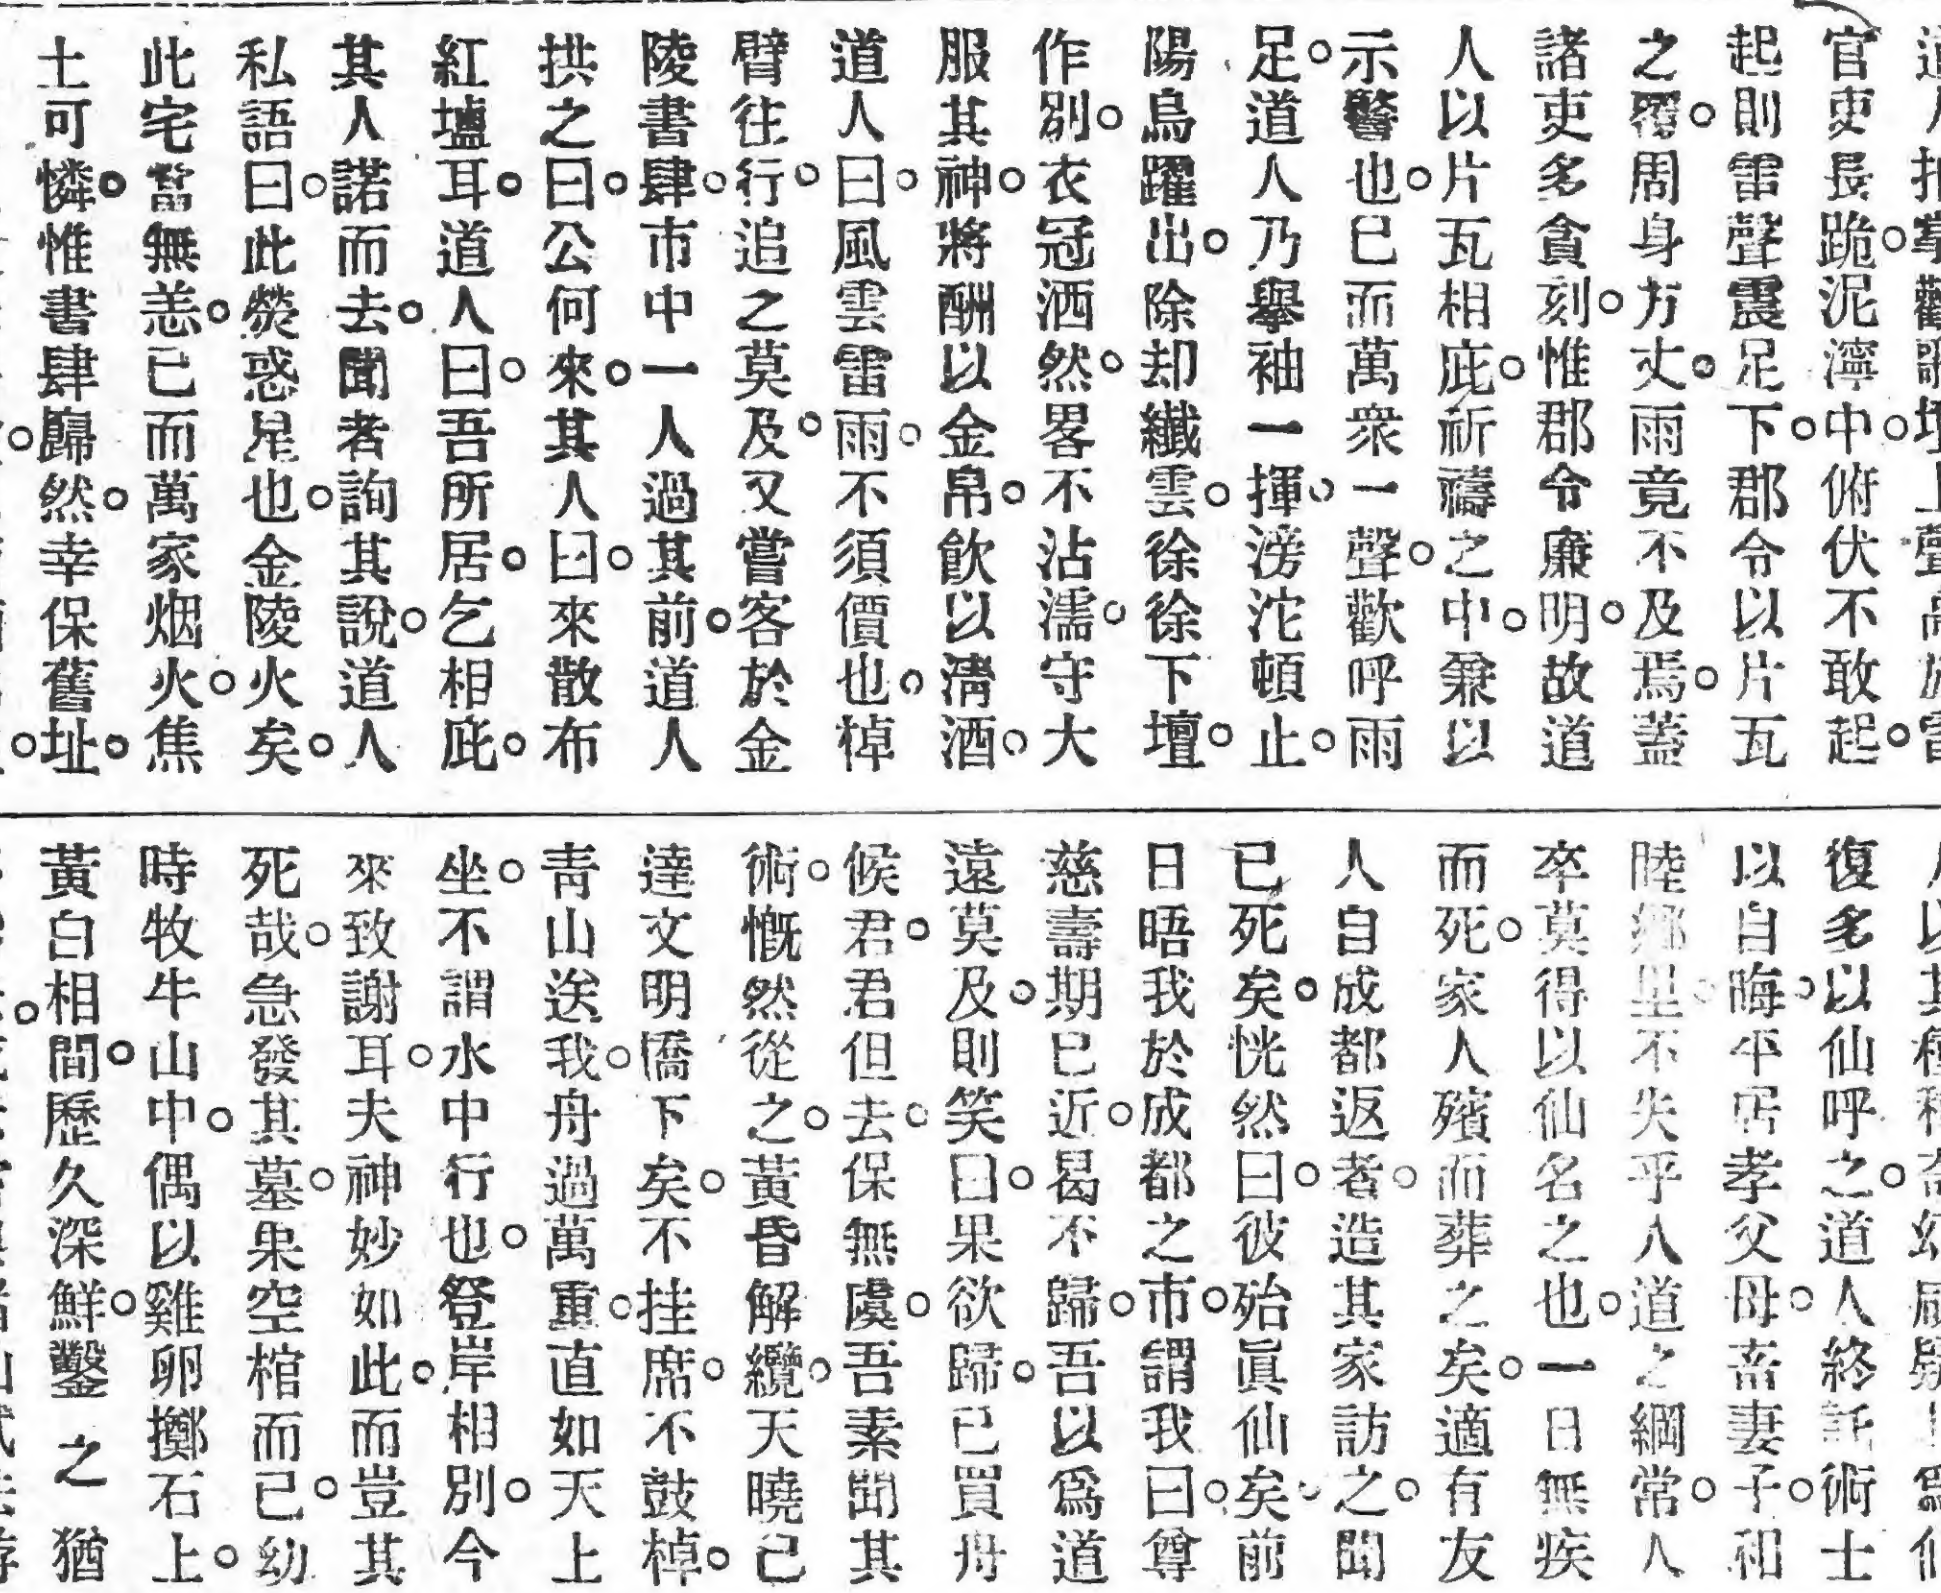 官吏長跪。泥濘中。俯伏不敢起。
起則雷聲震足下。郡令以片瓦
之覆。周身方丈。雨竟不及焉。蓋
諸吏多貪刻。惟郡令廉明。故道
人以片瓦相庇。祈禱之中。兼以
示警也。已而萬衆一聲。歡呼雨
足。道人乃舉袖一揮。滂沱頓止。
陽烏躍出。除却纖雲。徐徐下壇。
作別。衣冠洒然。畧不沾濡。守大
服其神。將酬以金帛。飮以淸酒。
道人曰。風雲雷雨。不須價也。棹
臂往行。追之莫及。又嘗客於金
陵書肆。市中一人過其前。道人
拱之曰。公何來。其人曰。來散布
紅壚耳。道人曰。吾所居。乞相庇。
其人諾而去。聞者詢其說。道人
私語曰。此熒惑星也。金陵火矣。
此宅當無恙。已而萬家烟火。焦
土可憐。惟書肆歸然。幸保舊址。
復多以仙呼之。道人終託術士
以自晦。平居孝父母。畜妻子。和
睦鄉里。不失乎人道之綱常。人
卒莫得以仙名之也。一日無疾
而死。家人殯而葬之矣。適有友
人自成都返者。造其家訪之。聞
已死矣。恍然曰。彼殆眞仙矣。前
日晤我於成都之市。謂我曰。尊
慈壽期已近。曷不歸。吾以爲道
遠莫及。則笑曰。果欲歸。已買舟
候君。君但去。保無虞。吾素聞其
術。慨然從之。黃昏解纜。天曉已
達文明橋下矣。不挂席。不鼓棹。
靑山送我。舟過萬重。直如天上
坐。不謂水中行也。登岸相別。今
來致謝耳。夫神妙如此。而豈其
死哉。急發其墓。果空棺而已。幼
時牧牛山中。偶以雞卵擲石上。
黃白相間。歷久深鮮。鑿之猶